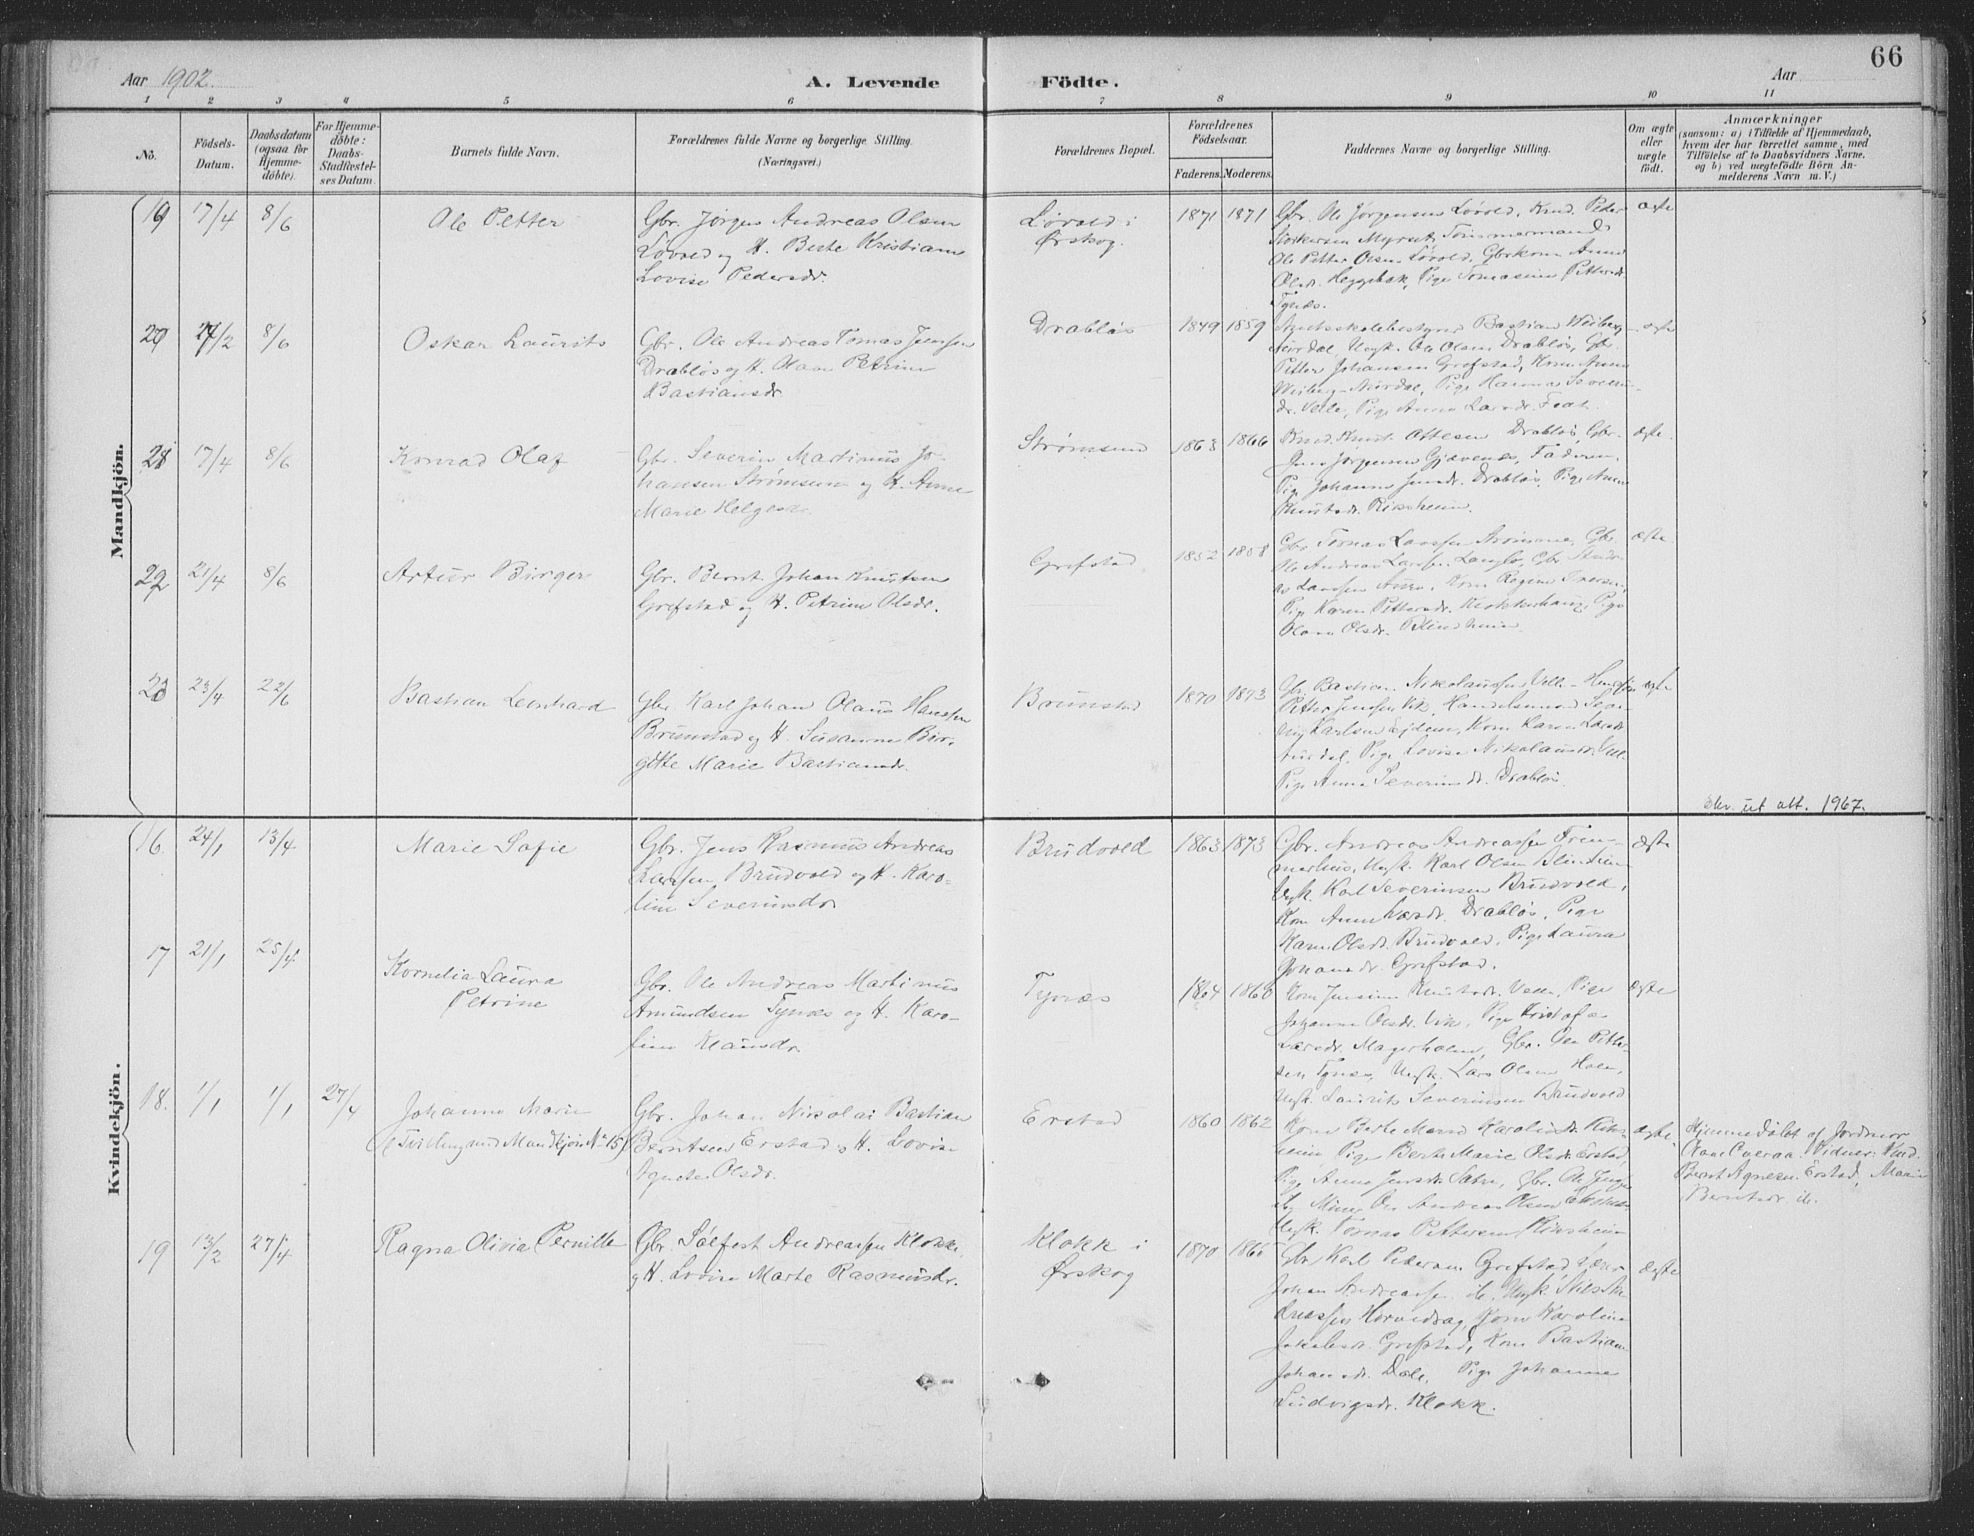 66
Aar 1902.
A. Levende Födte.
Aar
1 2 3 4 5 6 7 8 9 10 11
No.
Födsels-
Datum.
Daabsdatum
(ogsaa for
Hjemme-
döbte).
For Hjemme-
döbte:
Daabs-
Stadfæstel-
ses Datum.
Barnets fulde Navn.
Forældrenes fulde Navne og borgerlige Stilling.
(Næringsvei.)
Forældrenes Bopæl.
Forældrenes
Födselsaar.
Faderens. Moderens.
Faddernes Navne og borgerlige Stilling.
Om ægte
eller
uægte
födt.
Anmærkninger
(saasom: a) i Tilfælde af Hjemmedaab,
hvem der har forrettet samme, med
Tilföielse af to Daabsvidners Navne,
og b) ved uægtefödte Börn An-
melderens Navn m. V.)
Mandkjön.
19 17/4 8/6 Ole Petter
Gbr. Jørgen Andreas Olsen
Løvold og H. Berte Kristiane
Lovise Pedersdr.
Løvold i
Ørskog.
1871 1871
Gbr. Ole Jørgensen Løvold, Knud Peder
Myrset, Tømmermand
Ole Petter Olsen Løvold, Gbrkone Anne
Olsdr. Heggebak, Pige Tomasine Pettersdr.
Tynæs.
ægte
20 8/6 Oskar Laurits
Gbr. Ole Andreas Tomas Jensen
Drabløs og H. Olave Petrine
Bastiansdr.
Drabløs
1849 1859
Amtsskolebestyrer Bastian Wiberg-
Aurdal, Ungk. Ole Olsen Drabløs, Gbr.
Petter Johansen Grefstad, Kone Anne
Wiberg-Aurdal, Pige Hanna Severin-
dr. Velle, Pige Anne Larsdr.
ægte
21 17/4 8/6 Konrad Olaf
Gbr. Severin Martinus Jo-
hansen Strømsem og H. Anne
Marie Helgesdr.
Strømsem
1863 1866
Knud Ottesen Drabløs, Gbr.
Jens Jørgensen Gjævenes, Faderen,
Pige Johanne Jensdr. Drabløs, Pige Anne
Knutsdr. Riksheim.
ægte
22 21/4 8/6 Artur Birger
Gbr. Bernt Johan Knutsen
Grefstad og H. Petrine Olsdr.
Grefstad
1852 1858
Gbr. Tomas Larssen Strømme, Gbr.
Ole Andreas Larssen Langlo, Gbr. Andre-
as Larssen Aure, Kone Regine Iversen,
Pige Karen Pettersdr. Klokkerhaug, Pige
Olave Olsdr. Blindheim.
ægte
23 23/4 22/6 Bastian Leonhard
Gbr. Karl Johan Olaus Hanssen
Brunstad og H. Susanne Bir-
gitte Marie Bastiansdr.
Brunstad
1870 1873
Gbr. Bastian Nikolaussen Velle,
Petter Jenssen Vik, Handelsmand
Karlsen Ejdem, Kone Karen Larsdr.
Aurdal, Pige Lovise Nikolausdr. Velle,
Pige Anna Severinsdr. Drabløs
ægte
Skr. ut att. 1967.
Kvindekjön.
16. 24/1 13/4 Marie Sofie
Gbr. Jens Rasmus Andreas
Larssen Brudvold og H. Karo-
line Severinsdr
Brudvold
1863 1873
Gbr. Andreas Andreassen Frem-
merhus, Ungk. Karl Olsen Blindheim
Ungk. Karl Severinsen Brudvold,
Kone Anne Larsdr. Drabløs, Pige
Karen Olsdr. Brudvold, Pige Laura
Johansdr. Grefstad.
ægte
17 21/1 25/4 Kornelia Laura
Petrine
Gbr. Ole Andreas Martinus
Amundsen Tynæs og H. Karo-
line Klausdr.
Tynæs
1864 1860
Kone Jensine Knutsdr. Velle, Pige
Johanne Olsdr. Vik, Pige Kristofa
Larsdr. Magerholm, Gbr. Ole Petter-
sen Tynæs, Ungk. Lars Olsen Holm,
Ungk. Laurits Severinsen Brudvold
ægte
18. 1/1 1/1 27/4 Johanne Marie
(Tvilling med Mandkjön No 15)
Gbr. Johan Nikolai Bastian
Berntsen Erstad og H. Lovise
Agnete Olsdr.
Erstad
1860 1862
Kone Berte Marie Karolinedr. Riks-
heim, Pige Berte Marie Olsdr. Erstad,
Pige Anna Jensdr. Sætre, Gbr. Ole
Ole Andreas Olsen
Ungk. Tomas Pettersen Riksheim
ægte.
Hjemmedøbt af Jordmor
Vidner: Knud
Bernt Agnesen Erstad, Marie
Berntsdr. ib.
19 13/2 27/4 Ragna Olivia Pernille
Gbr. Sølfest Andreassen Klokk
og H. Lovise Marte Rasmusdr.
Klokk i
Ørskog
1870 1865
Gbr. Karl Pedersen Grefstad,
Johan Andreassen ib., Ungk. Nils An-
dreassen Hovedvåg, Kone Karoline
Jakobsdr. Grefstad, Kone Bastiane
Johansdr. Dale, Pige Johanne
Ludvigsdr. Klokk.
ægte